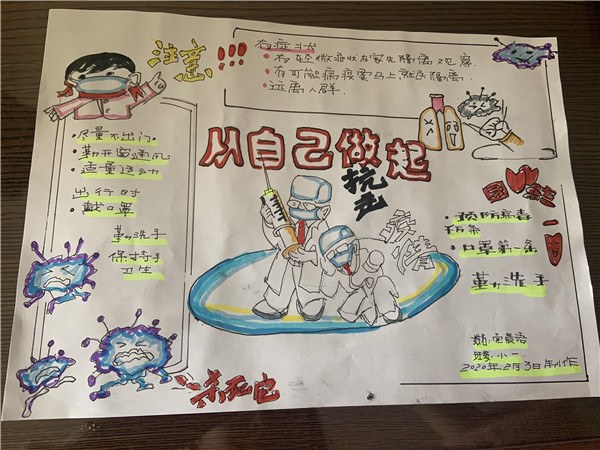 注意!!!
有症状
·有轻微症状在家先隔离观察.
·有可能病疫要马上就医隔离.
·远离人群.
从自己做起
抗击
疫情
·尽量不出门.
·勤开窗通风
·适量运动
出行时
·戴口罩
勤洗手
保持手
卫生
团结一
·预防病毒
·口罩第一条
勤洗手
2020年2月3日制作
杀死它